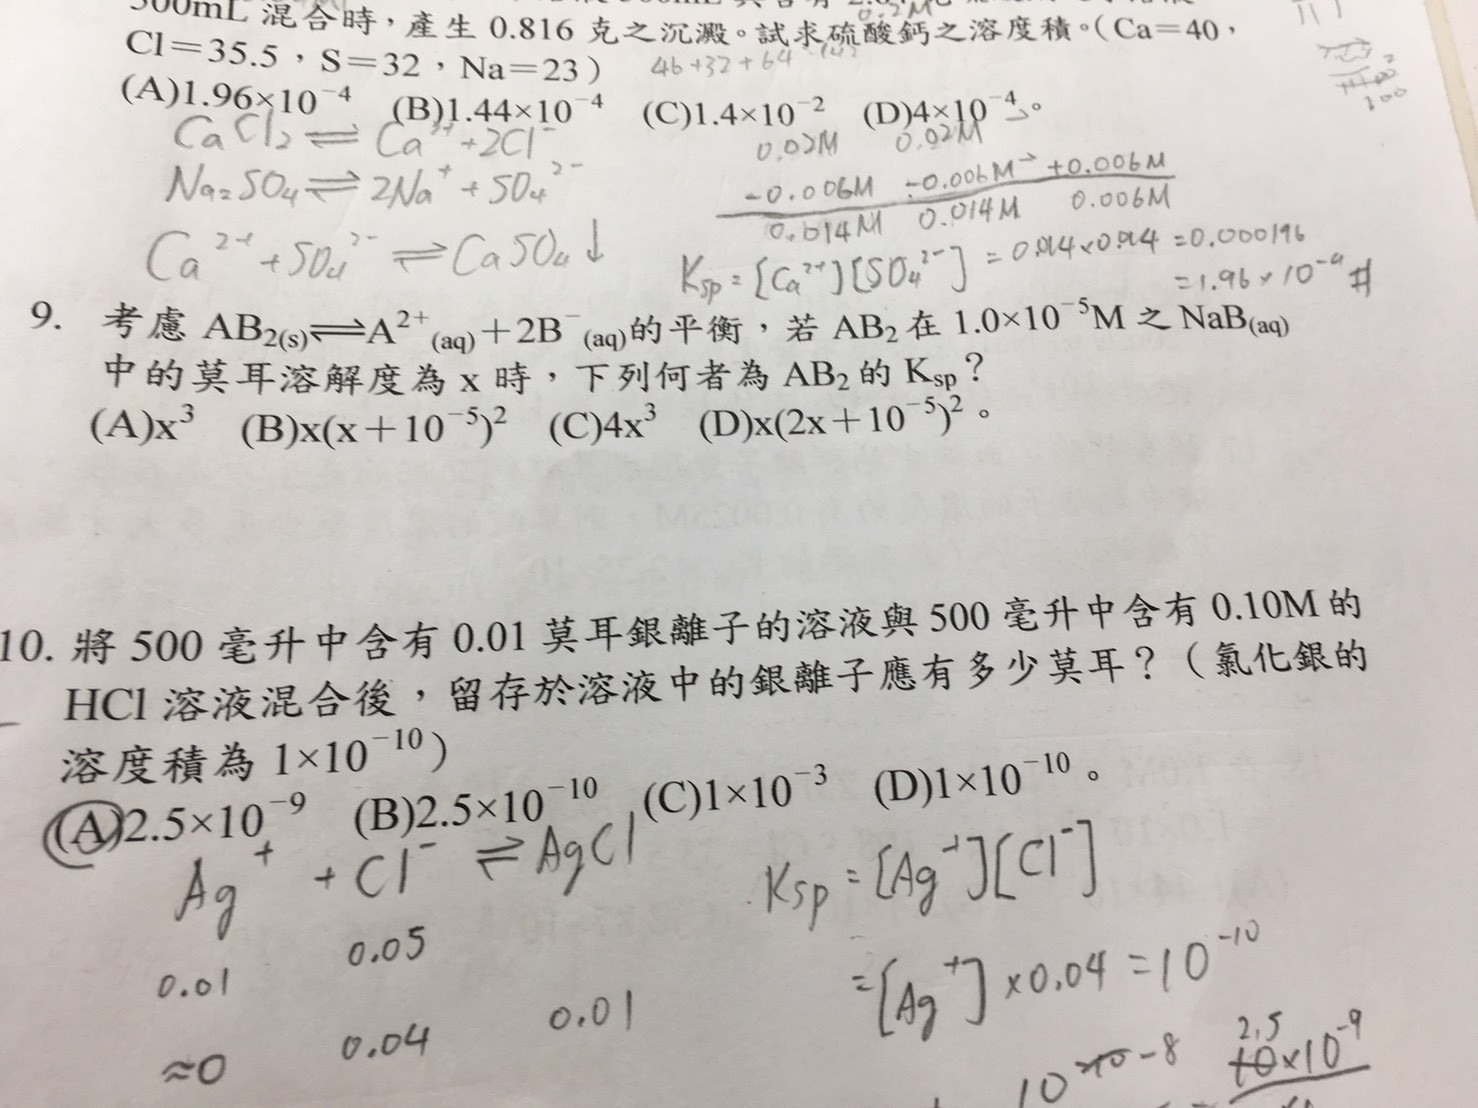 500mL 混合時，產生 0.816 克之沉澱。試求硫酸鈣之溶度積。(Ca=40，
Cl=35.5，S=32，Na=23)
46+32+64
(A)1.96×10⁻⁴ (B)1.44×10⁻⁴ (C)1.4×10⁻² (D)4×10⁻⁴。
CaCl₂ ⇌ Ca²⁺+2Cl⁻
0.02M 0.02M
Na₂SO₄ ⇌ 2Na⁺+SO₄²⁻
-0.006M -0.006M +0.006M
0.014M 0.014M 0.006M
Ca²⁺+SO₄²⁻ ⇌ CaSO₄↓
Ksp=[Ca²⁺][SO₄²⁻]=0.014×0.014=0.000196
=1.96×10⁻⁴ #
9. 考慮 AB₂(s)⇌A²⁺(aq)+2B⁻(aq)的平衡，若 AB₂ 在 1.0×10⁻⁵M 之 NaB(aq)
中的莫耳溶解度為 x 時，下列何者為 AB₂ 的 Ksp？
(A)x³ (B)x(x+10⁻⁵)² (C)4x³ (D)x(2x+10⁻⁵)²。
10. 將 500 毫升中含有 0.01 莫耳銀離子的溶液與 500 毫升中含有 0.10M 的
HCl 溶液混合後，留存於溶液中的銀離子應有多少莫耳？（氯化銀的
溶度積為 1×10⁻¹⁰）
(A)2.5×10⁻⁹ (B)2.5×10⁻¹⁰ (C)1×10⁻³ (D)1×10⁻¹⁰。
Ag⁺ + Cl⁻ ⇌ AgCl
Ksp=[Ag⁺][Cl⁻]
0.01 0.05
=[Ag⁺]×0.04=10⁻¹⁰
≈0 0.04 0.01